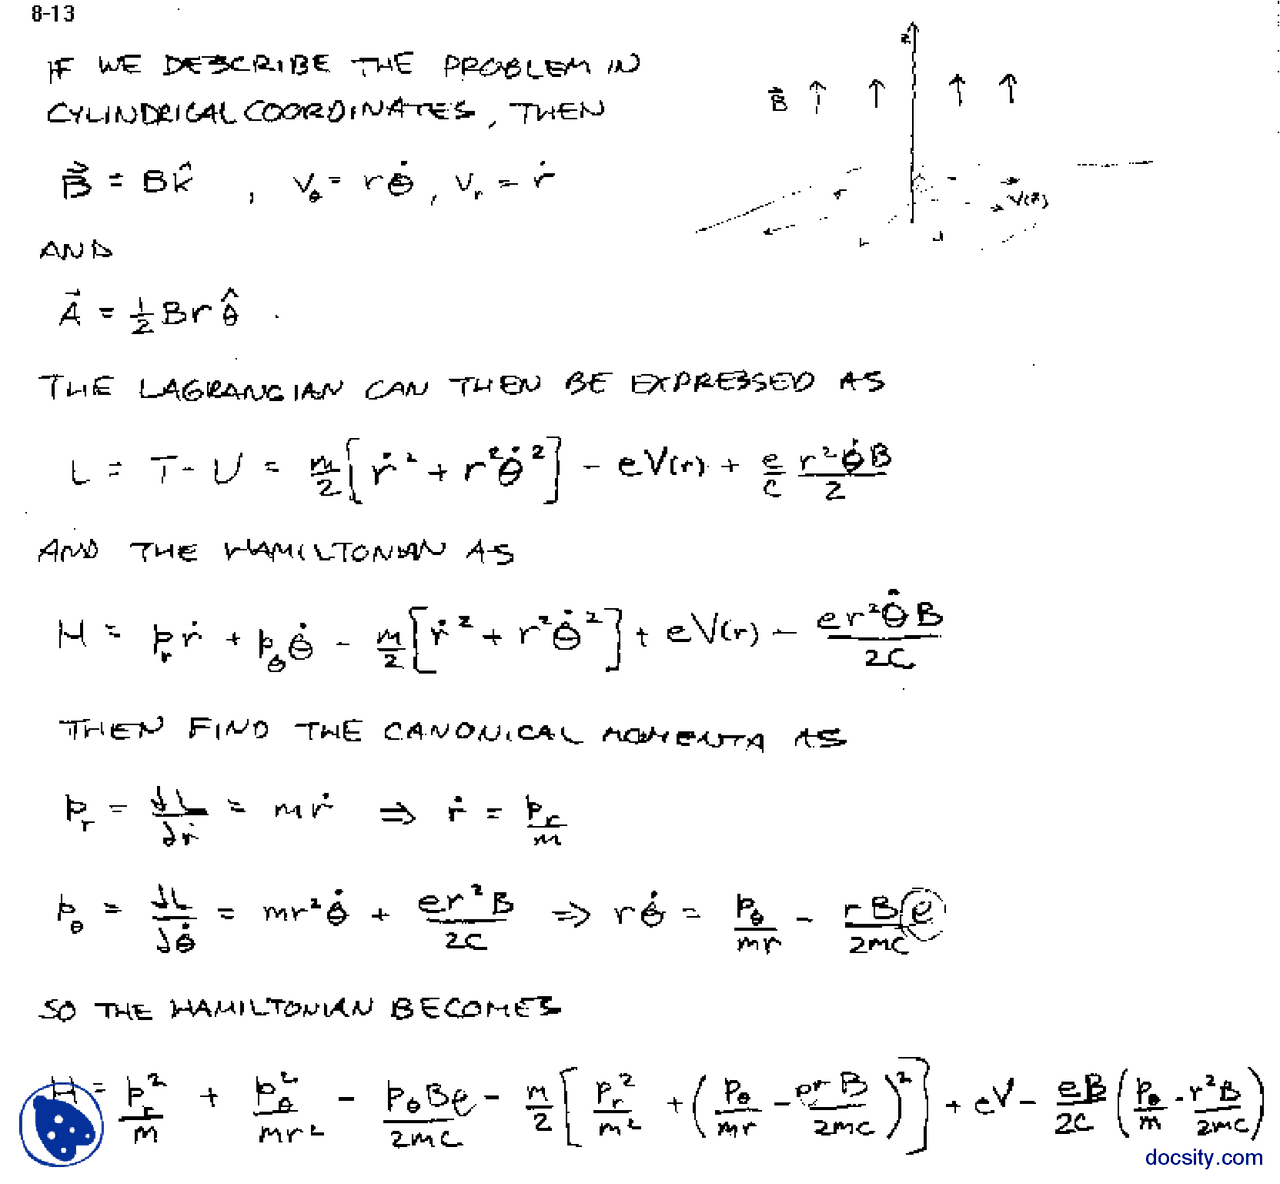 8-13
IF WE DESCRIBE THE PROBLEM IN
CYLINDRICAL COORDINATES, THEN
z
B⃗ ↑ ↑ ↑ ↑
B⃗ = Bk̂ , v_θ = rθ̇, v_r = ṙ
r V(r)
AND
A⃗ = 1/2 Br θ̂ .
THE LAGRANGIAN CAN THEN BE EXPRESSED AS
L = T - U = m/2 [ṙ² + r²θ̇²] - eV(r) + e/c r²θ̇B/2
AND THE HAMILTONIAN AS
H = p_r ṙ + p_θ θ̇ - m/2 [ṙ² + r²θ̇²] + eV(r) - er²θ̇B/2C
THEN FIND THE CANONICAL MOMENTA AS
p_r = ∂L/∂ṙ = mṙ ⇒ ṙ = p_r/m
p_θ = ∂L/∂θ̇ = mr²θ̇ + er²B/2C ⇒ rθ̇ = p_θ/mr - rBe/2mC
SO THE HAMILTONIAN BECOMES
H = p_r²/m + p_θ²/mr² - p_θBe/2mC - m/2 [p_r²/m² + (p_θ/mr - erB/2mC)²] + eV - eB/2C (p_θ/m - r²B/2mC)
docsity.com